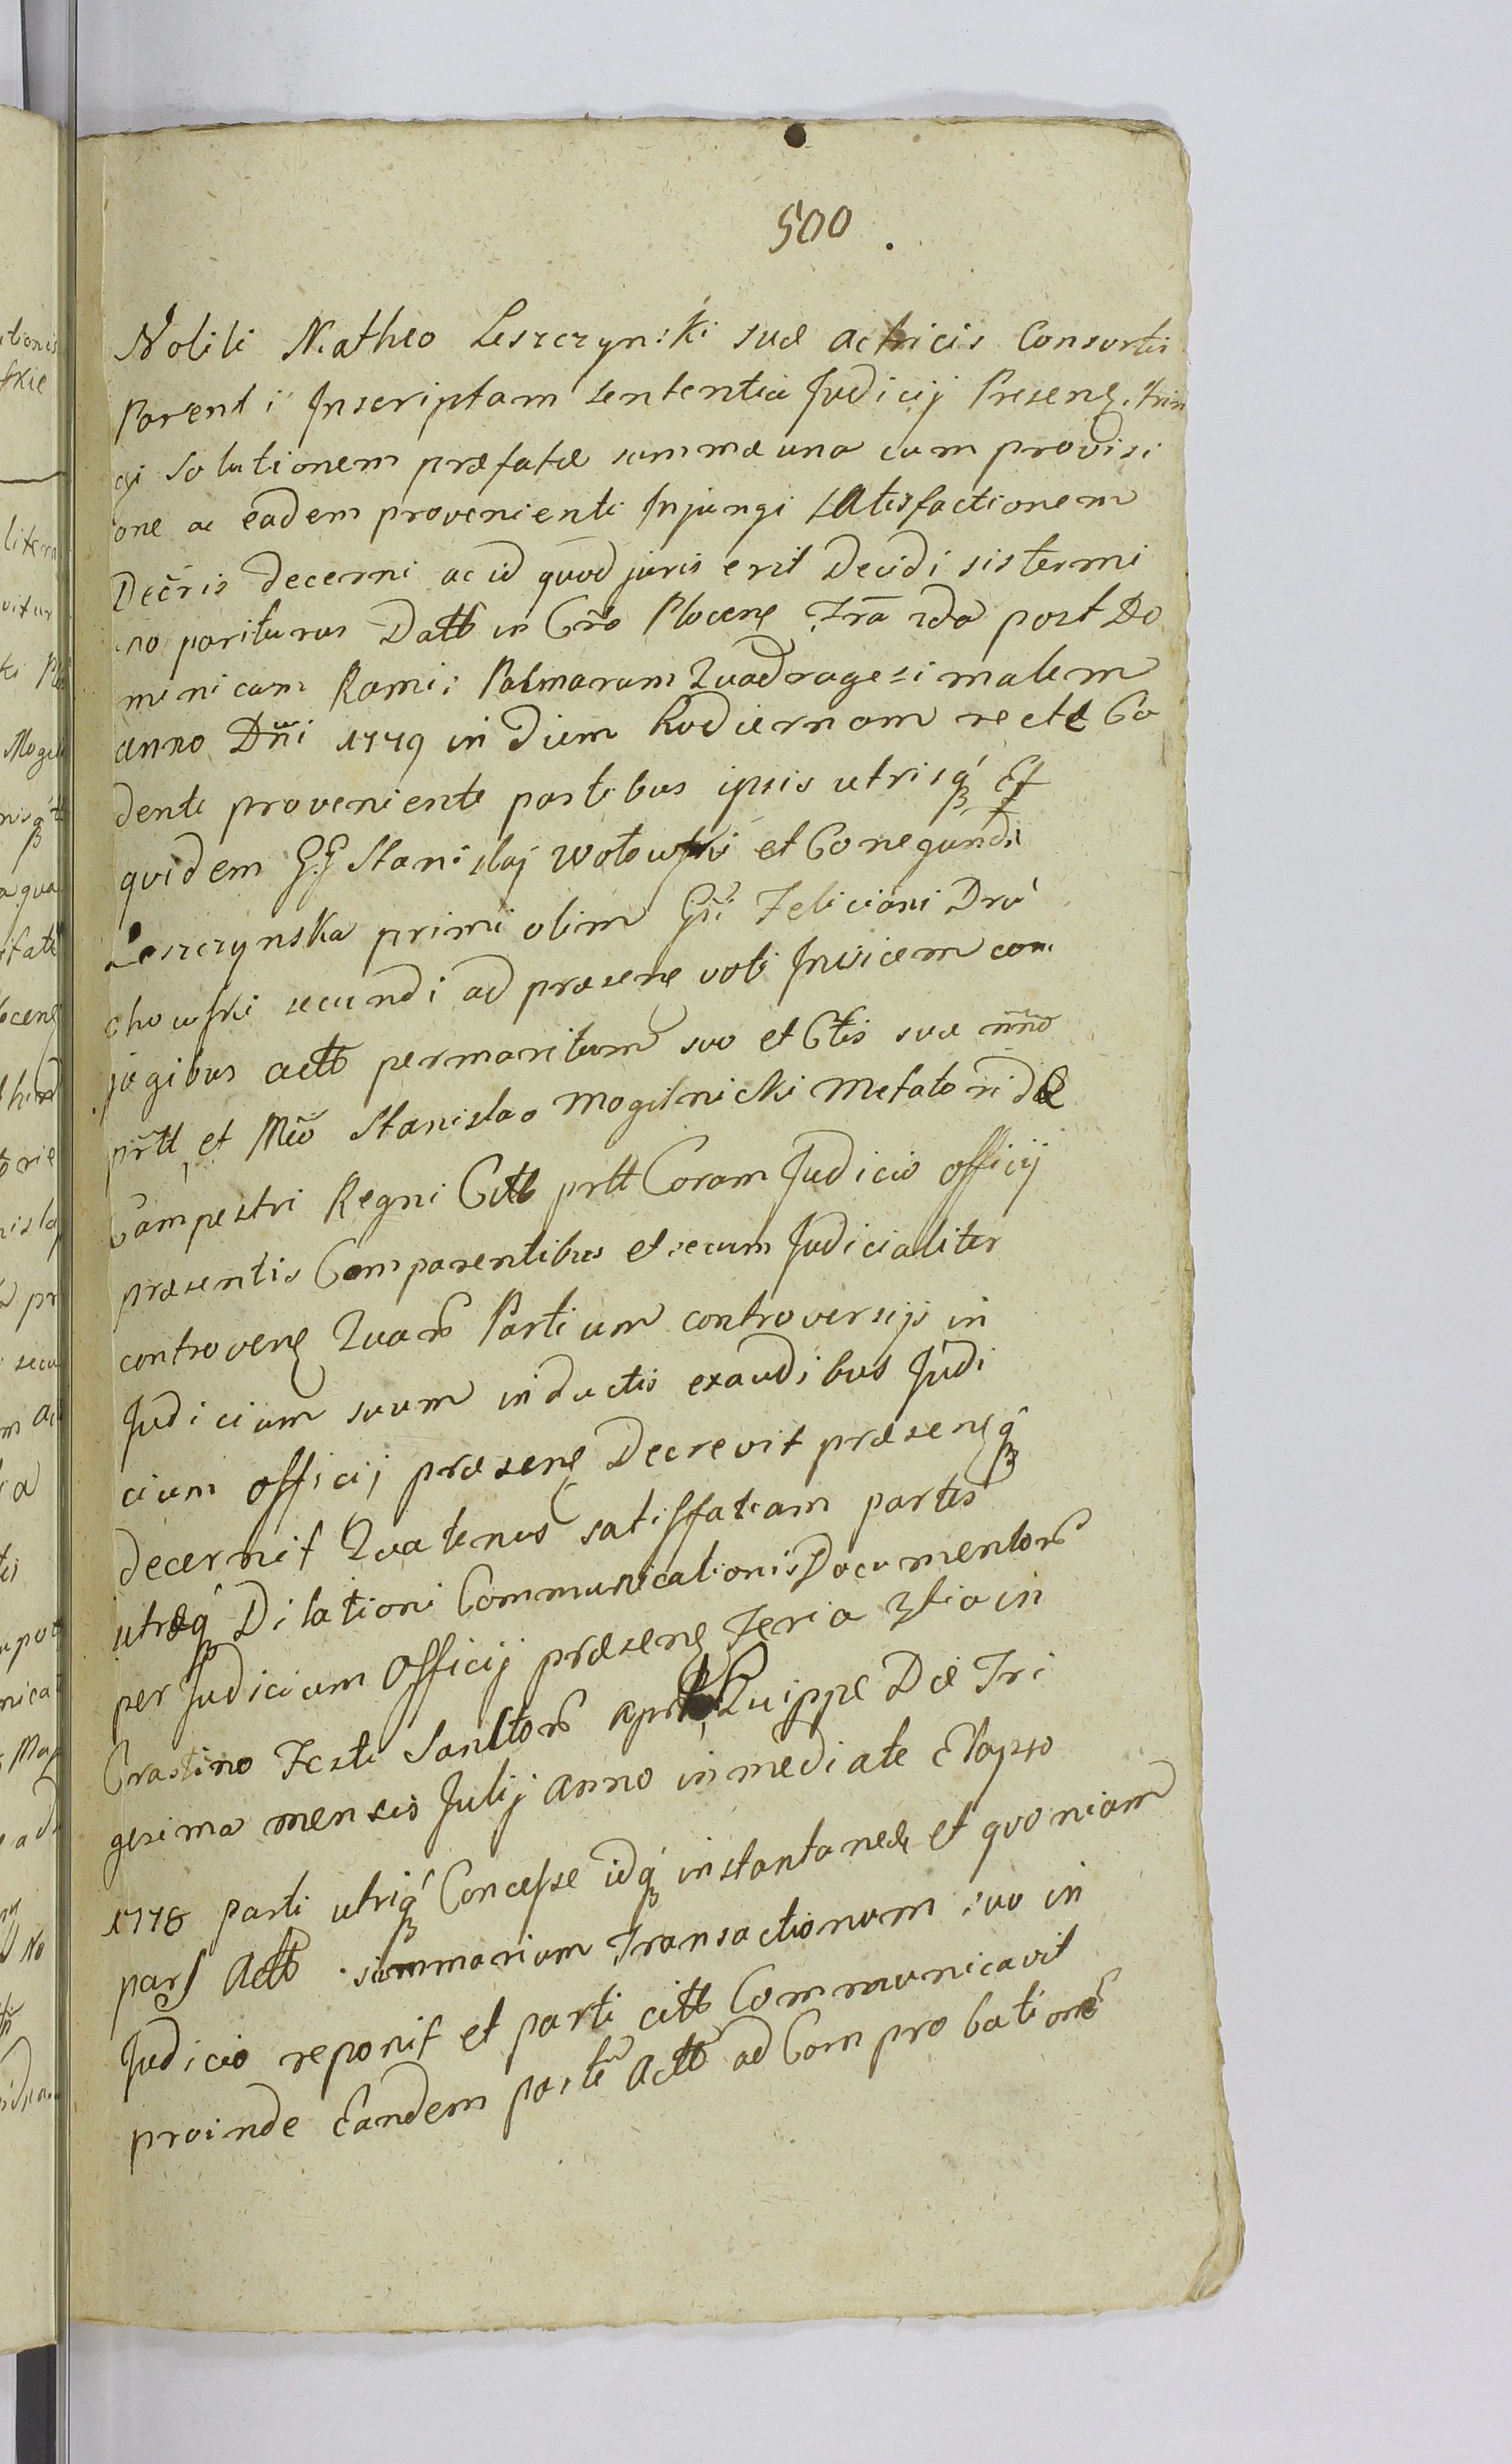 500.
Nobili Matheo Leszczynski suæ actricis Consortis
Parenti Inscriptam sententia Judicij Presenę. trin
gi solutionem præfatæ summæ una cum provisi
one ac eadem provenienti Injungi satisfactionem
Decris decerni ac id quod juris erit Decidi sis termi
no pariturus Datt in Cro Plocenę Fra 2da post Do
minicam Rami: Palmarum Quadragesimalem
anno Dni 1779 in diem hodiernam recte Ca
dente proveniente partibus ipsis utrisq Et
quidem G.G Stanislaj Wołowski et Conegundi
Leszczynska primi olim Gni Feliciani Dro
chowski secundi ad præsenę voti Invicem con
jugibus actt permaritum suo et Ctis suæ nno
prtt et Mco Stanislao Mogilnicki Metatori
Campestri Regni Citt prtt Coram Judicio officij
præsentis Comparentibus et secum Judicialiter
controvenę Quar Partium controversijs in
Judicium suum inductis exaudibus Judi
cium officij præsenę Decrevit præsenęq
decernit Quatenus satisffatiam partis
utræq Dilationi Communicationis Documentor
per Judicium Officij præsenę Feria 3tia in
Crastino Festi Sanctor Quippe Die Tri
gesima mensis Julij anno immediate Elapso
1778 parti utriq Concesse idq instantanee et quoniam
pars Actt summarium Transactionum suo in
Judicio reponit et parti citt Communicavit
proinde Eandem parte Actt ad Comprobatione